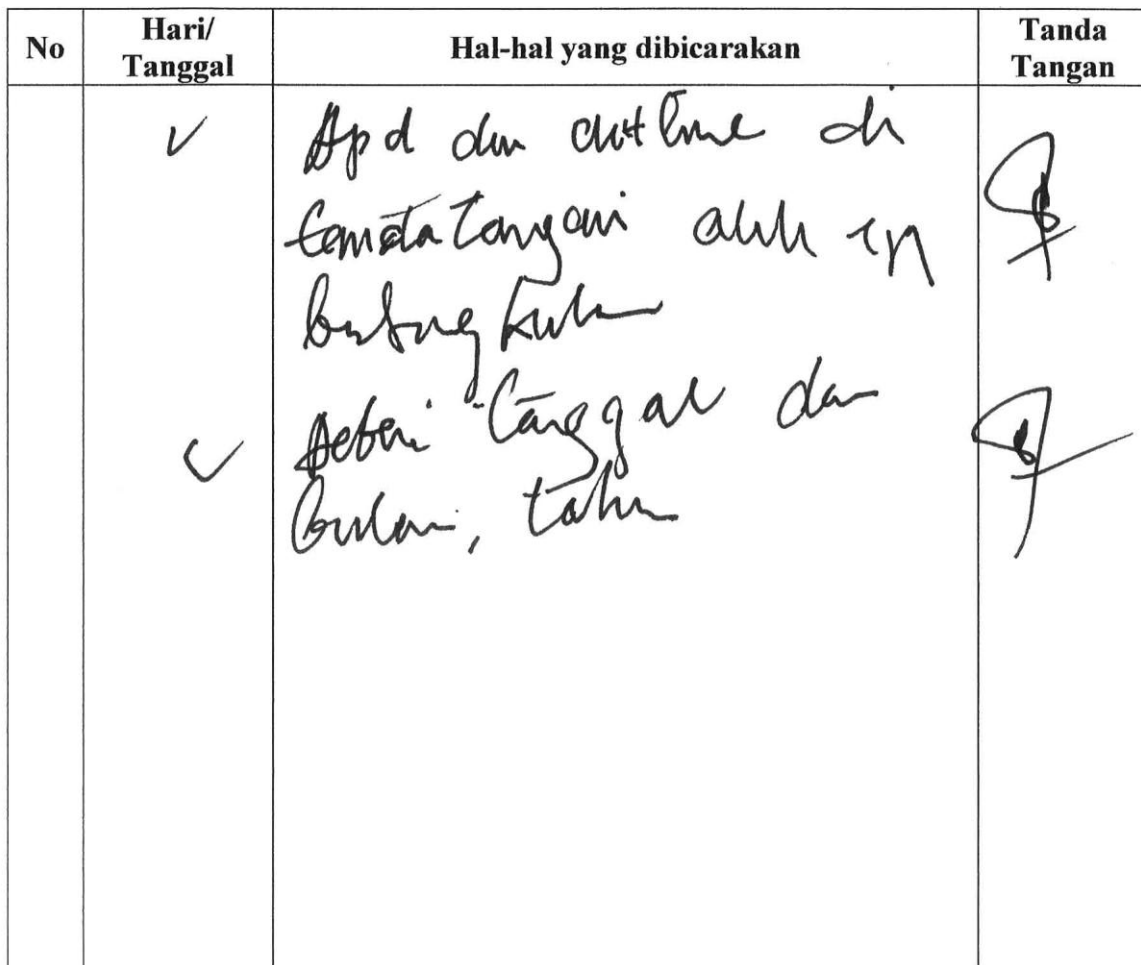 No
Hari/
Tanggal
Hal-hal yang dibicarakan
Tanda
Tangan
Apd dan outline di
tanda tangani oleh
diberi tanggal dan
bulan, tahun